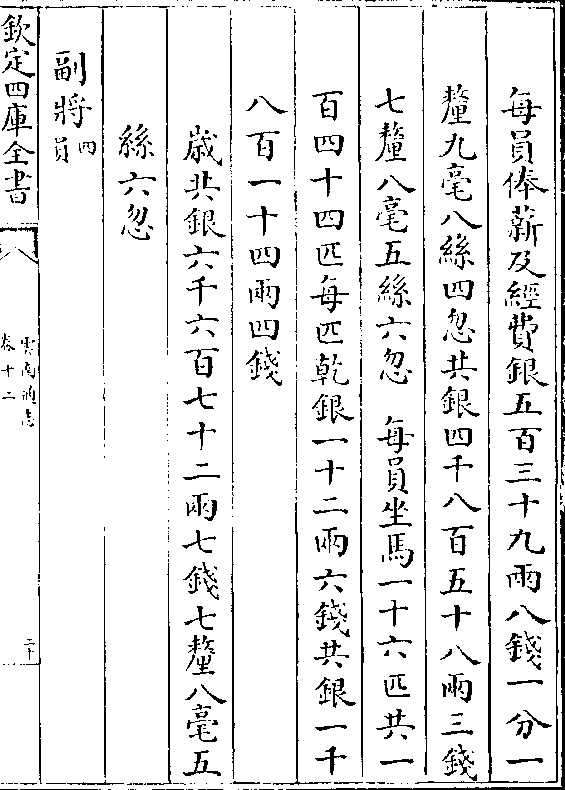 每員俸薪及經費銀五百三十九兩八錢一分一
釐九毫八絲四忽共銀四千八百五十八兩三錢
七釐八毫五絲六忽　每員坐馬一十六匹共一
百四十四匹每匹乾銀一十二兩六錢共銀一千
八百一十四兩四錢
歲共銀六千六百七十二兩七錢七釐八毫五
絲六忽
副將四員
欽定四庫全書
雲南通志
卷十二
二十